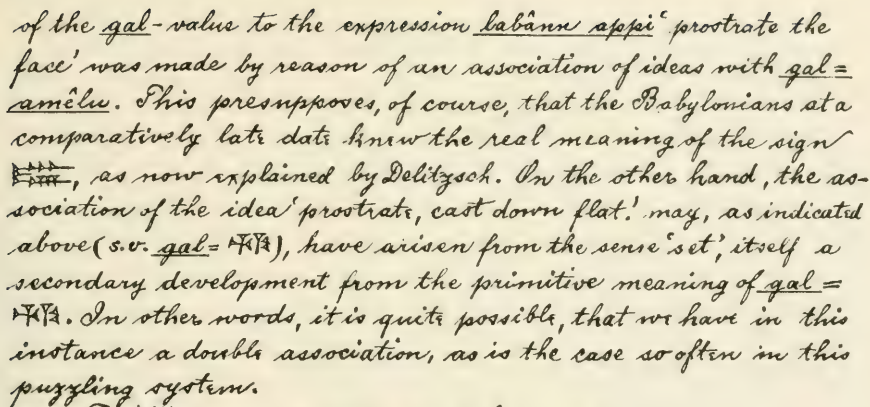 of the gal-value to the expression labânu appi ‘prostrate the
face’ was made by reason of an association of ideas with gal =
amêlu. This presupposes, of course, that the Babylonians at a
comparatively late date knew the real meaning of the sign
, as now explained by Delitzsch. On the other hand, the as-
sociation of the idea ‘prostrate, cast down flat’ may, as indicated
above (s.v. gal = ), have arisen from the sense ‘set’, itself a
secondary development from the primitive meaning of gal =
. In other words, it is quite possible, that we have in this
instance a double association, as is the case so often in this
puzzling system.